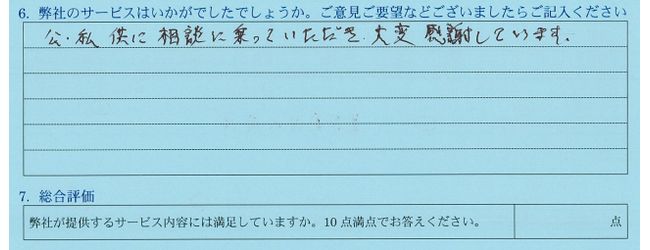 6. 弊社のサービスはいかがでしたでしょうか。ご意見ご要望などございましたらご記入ください
公・私 供に 相談に乗っていただき、大変 感謝しています。
7. 総合評価
弊社が提供するサービス内容には満足していますか。10 点満点でお答えください。 点